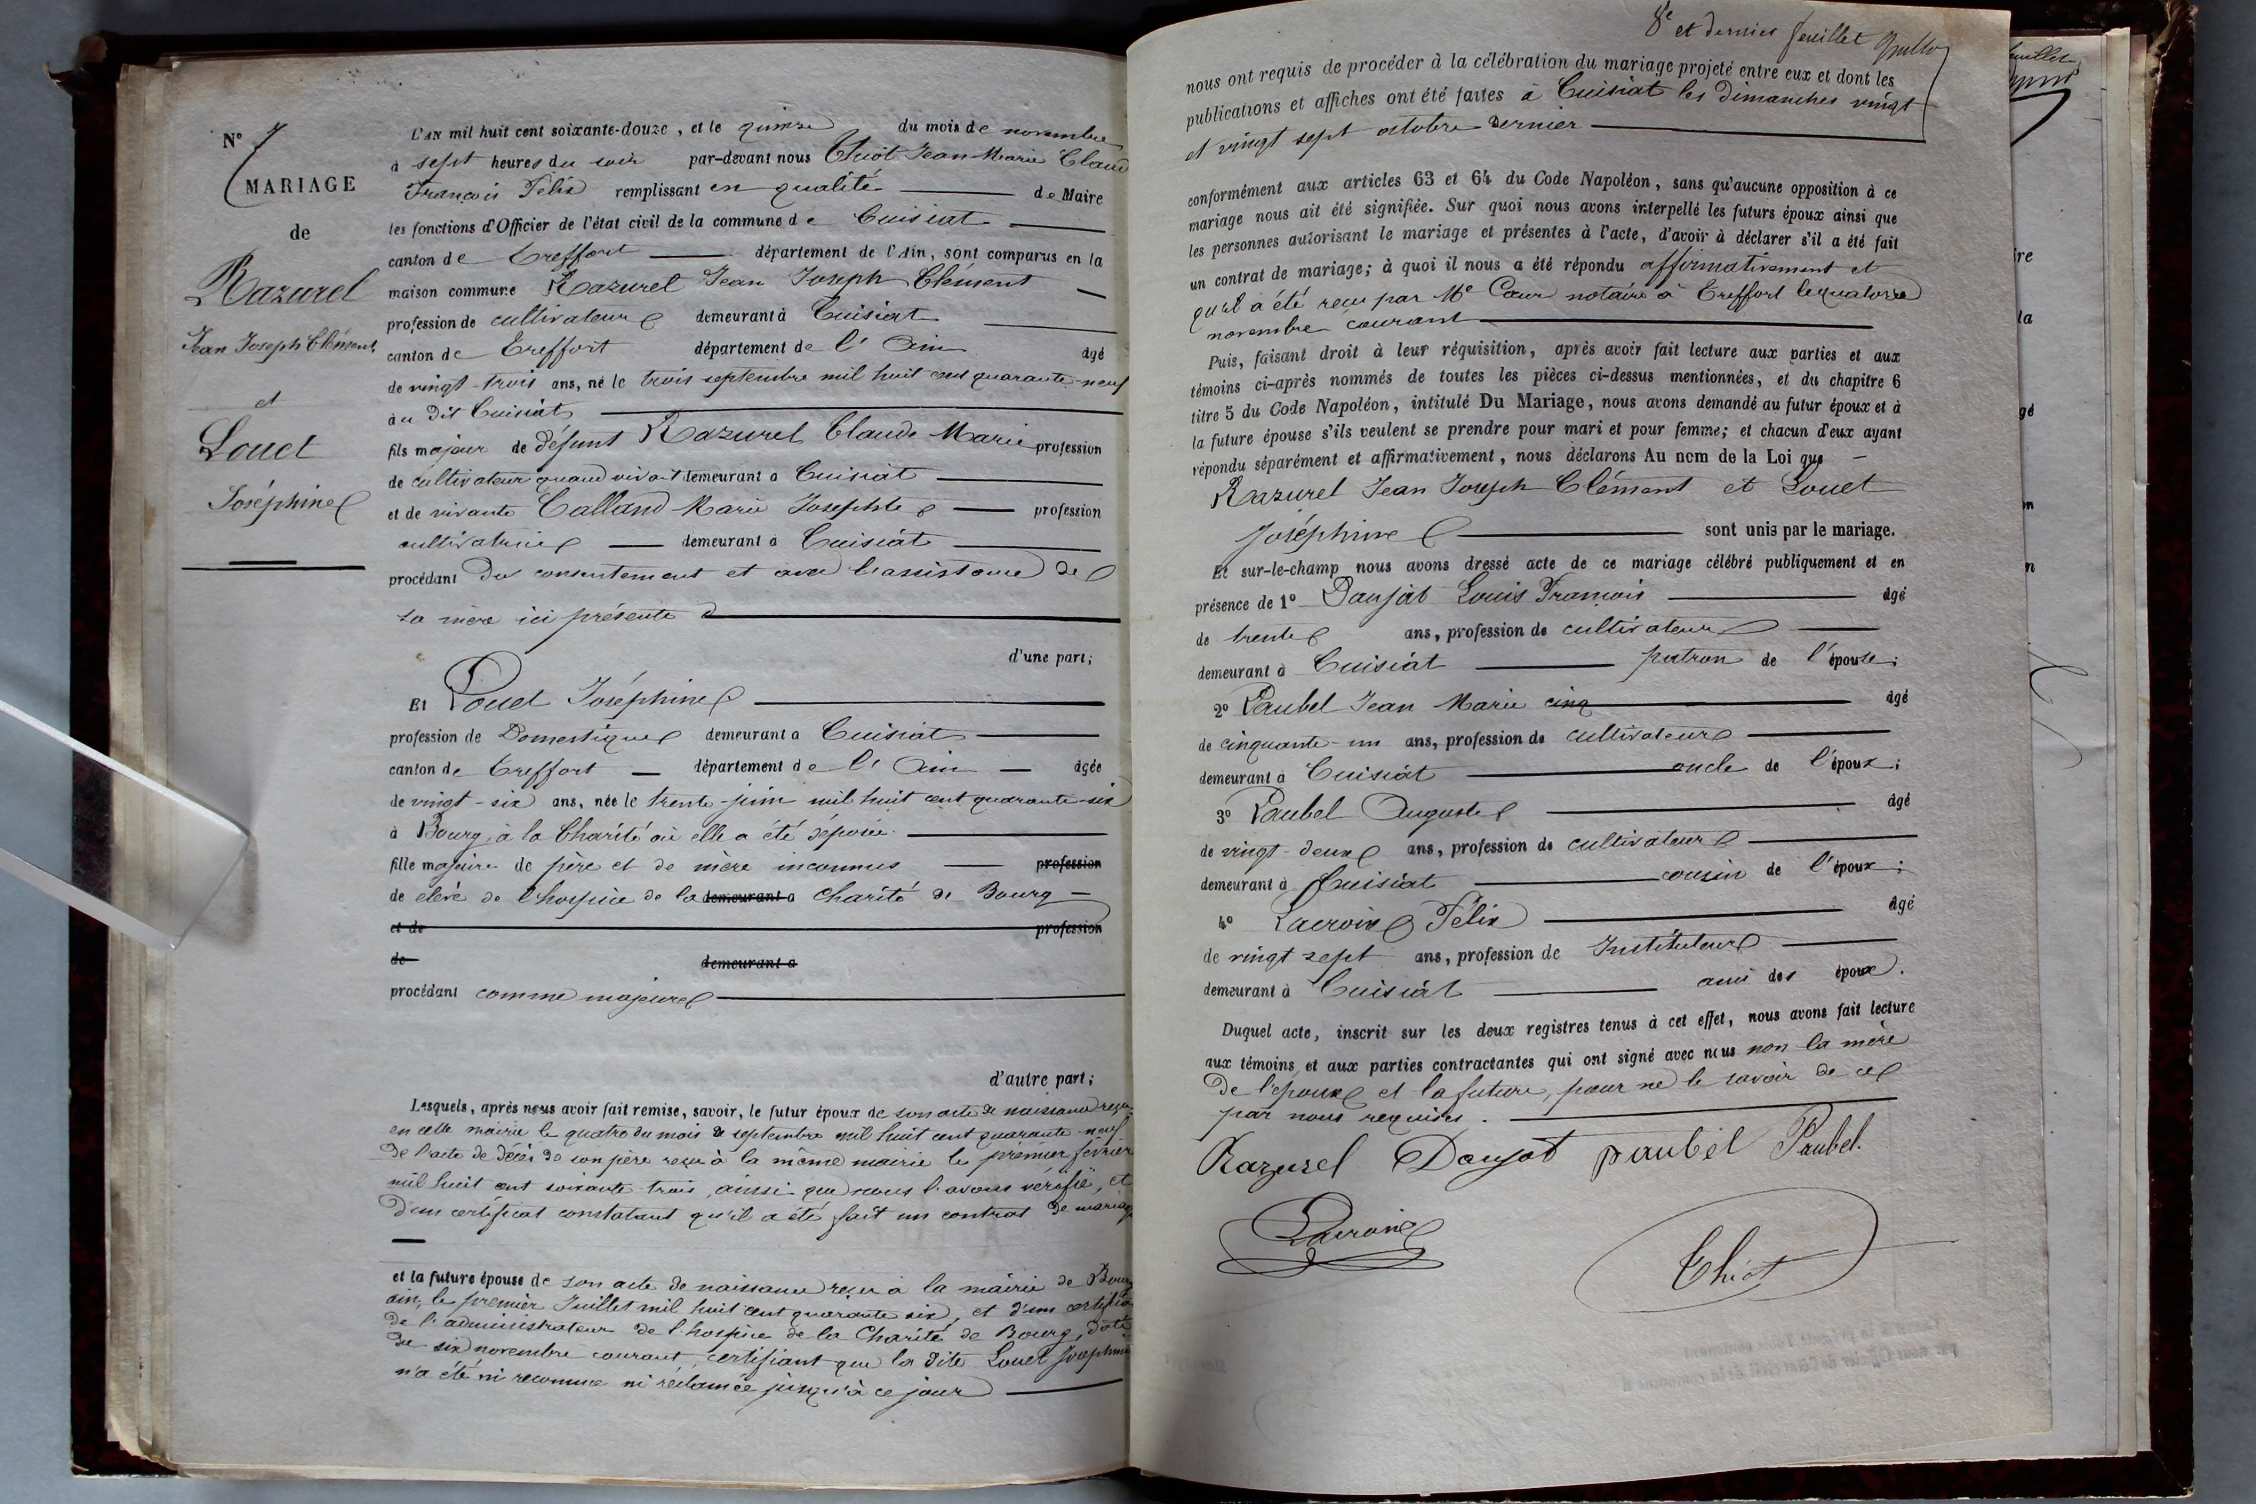 N° 7
MARIAGE
de
Razurel
Jean Joseph Clément
et
Louet
Joséphine
L'AN mil huit cent soixante-douze, et le quinze du mois de novembre
à sept heures du soir par-devant nous Thiot Jean Marie Claud
François Félix remplissant en qualité de Maire
les fonctions d'Officier de l'état civil de la commune de Cuisiat
canton de Treffort département de l'Ain, sont comparus en la
maison commune Razurel Jean Joseph Clément
profession de cultivateur demeurant à Cuisiat
canton de Treffort département de l'Ain âgé
de vingt-trois ans, né le trois septembre mil huit cent quarante-neuf
à au dit Cuisiat
fils majeur de défunt Razurel Claude Marie profession
de cultivateur quand vivait demeurant à Cuisiat
et de vivante Calland Marie Josephte profession
cultivatrice demeurant à Cuisiat
procédant du consentement et avec l'assistance de
sa mère ici présente
d'une part;
Et Louet Joséphine
profession de Domestique demeurant à Cuisiat
canton de Treffort département de l'Ain âgée
de vingt-six ans, née le trente juin mil huit cent quarante-six
à Bourg, à la Charité où elle a été déposée.
fille majeure de père et de mère inconnus profession
de élevé de l'hospice de la demeurant à Charité de Bourg
et de profession
de demeurant à
procédant comme majeure
d'autre part;
Lesquels, après nous avoir fait remise, savoir, le futur époux de son acte de naissance reçu
en cette mairie le quatre du mois de septembre mil huit cent quarante-neuf
de l'acte de décès de son père reçu à la même mairie le premier février
mil huit cent soixante trois, ainsi que nous l'avons vérifié, et
d'un certificat constatant qu'il a été fait un contrat de mariage
et la future épouse de son acte de naissance reçu à la mairie de Bourg
ain, le premier Juillet mil huit cent quarante six, et d'un certifica
de l'administrateur de l'hospice de la Charité de Bourg, daté
du six novembre courant, certifiant que la dite Louet Joséphine
n'a été ni reconnue ni réclamée jusqu'à ce jour
8e et dernier feuillet
nous ont requis de procéder à la célébration du mariage projeté entre eux et dont les
publications et affiches ont été faites à Cuisiat les dimanches vingt
et vingt sept octobre dernier
conformément aux articles 63 et 64 du Code Napoléon, sans qu'aucune opposition à ce
mariage nous ait été signifiée. Sur quoi nous avons interpellé les futurs époux ainsi que
les personnes autorisant le mariage et présentes à l'acte, d'avoir à déclarer s'il a été fait
un contrat de mariage; à quoi il nous a été répondu affirmativement et
qu'il a été reçu par Me Cœur notaire à Treffort le quatorze
novembre courant
Puis, faisant droit à leur réquisition, après avoir fait lecture aux parties et aux
témoins ci-après nommés de toutes les pièces ci-dessus mentionnées, et du chapitre 6
titre 5 du Code Napoléon, intitulé Du Mariage, nous avons demandé au futur époux et à
la future épouse s'ils veulent se prendre pour mari et pour femme; et chacun d'eux ayant
répondu séparément et affirmativement, nous déclarons Au nom de la Loi que
Razurel Jean Joseph Clément et Louet
Joséphine sont unis par le mariage.
Et sur-le-champ nous avons dressé acte de ce mariage célébré publiquement et en
présence de 1° Daujat Louis François âgé
de trente ans, profession de cultivateur
demeurant à Cuisiat patron de l'épouse;
2° Paubel Jean Marie cinq âgé
de cinquante-un ans, profession de cultivateur
demeurant à Cuisiat oncle de l'époux;
3° Paubel Auguste âgé
de vingt-deux ans, profession de cultivateur
demeurant à Cuisiat cousin de l'époux;
4° Lacroix Félix âgé
de vingt sept ans, profession de Instituteur
demeurant à Cuisiat ami des époux.
Duquel acte, inscrit sur les deux registres tenus à cet effet, nous avons fait lecture
aux témoins et aux parties contractantes qui ont signé avec nous non la mère
de l'époux et la future, pour ne le savoir de ce
par nous requises.
Razurel Daujat paubel Paubel.
Lacroix
Thiot